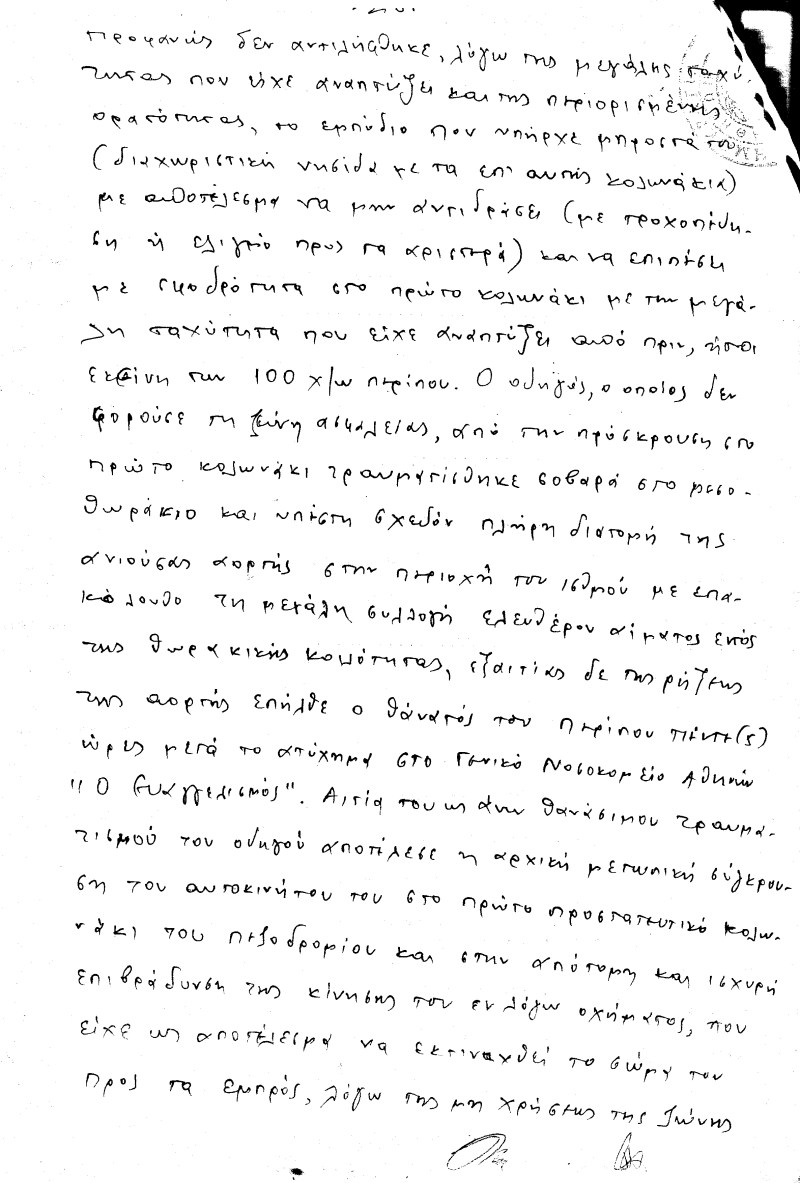 προφανώς δεν αντιλήφθηκε, λόγω της μεγάλης ταχύ-
τητας που είχε αναπτύξει και της περιορισμένης
ορατότητας, το εμπόδιο που υπήρχε μπροστά του
(διαχωριστική νησίδα με τα επ' αυτής κολωνάκια)
με αποτέλεσμα να μην αντιδράσει (με τροχοπέδη-
ση ή ελιγμό προς τα αριστερά) και να επιπέση
με σφοδρότητα στο πρώτο κολωνάκι με την μεγά-
λη ταχύτητα που είχε αναπτύξει από πριν, ήτοι
εκείνη των 100 χ/ω περίπου. Ο οδηγός, ο οποίος δεν
φορούσε τη ζώνη ασφαλείας, από την πρόσκρουση στο
πρώτο κολωνάκι τραυματίσθηκε σοβαρά στο μεσο-
θωράκιο και υπέστη σχεδόν πλήρη διατομή της
ανιούσας αορτής στην περιοχή του ισθμού με επα-
κόλουθο τη μεγάλη συλλογή ελευθέρου αίματος εντός
της θωρακικής κοιλότητας, εξαιτίας δε της ρήξεως
της αορτής επήλθε ο θάνατός του περίπου πέντε (5)
ώρες μετά το ατύχημα στο Γενικό Νοσοκομείο Αθηνών
"Ο Ευαγγελισμός". Αιτία του ως άνω θανάσιμου τραυμα-
τισμού του οδηγού αποτέλεσε η αρχική μετωπική σύγκρου-
ση του αυτοκινήτου του στο πρώτο προστατευτικό κολω-
νάκι του πεζοδρομίου και στην απότομη και ισχυρή
επιβράδυνση της κίνησης του εν λόγω οχήματος, που
είχε ως αποτέλεσμα να εκτιναχθεί το σώμα του
προς τα εμπρός, λόγω της μη χρήσεως της ζώνης